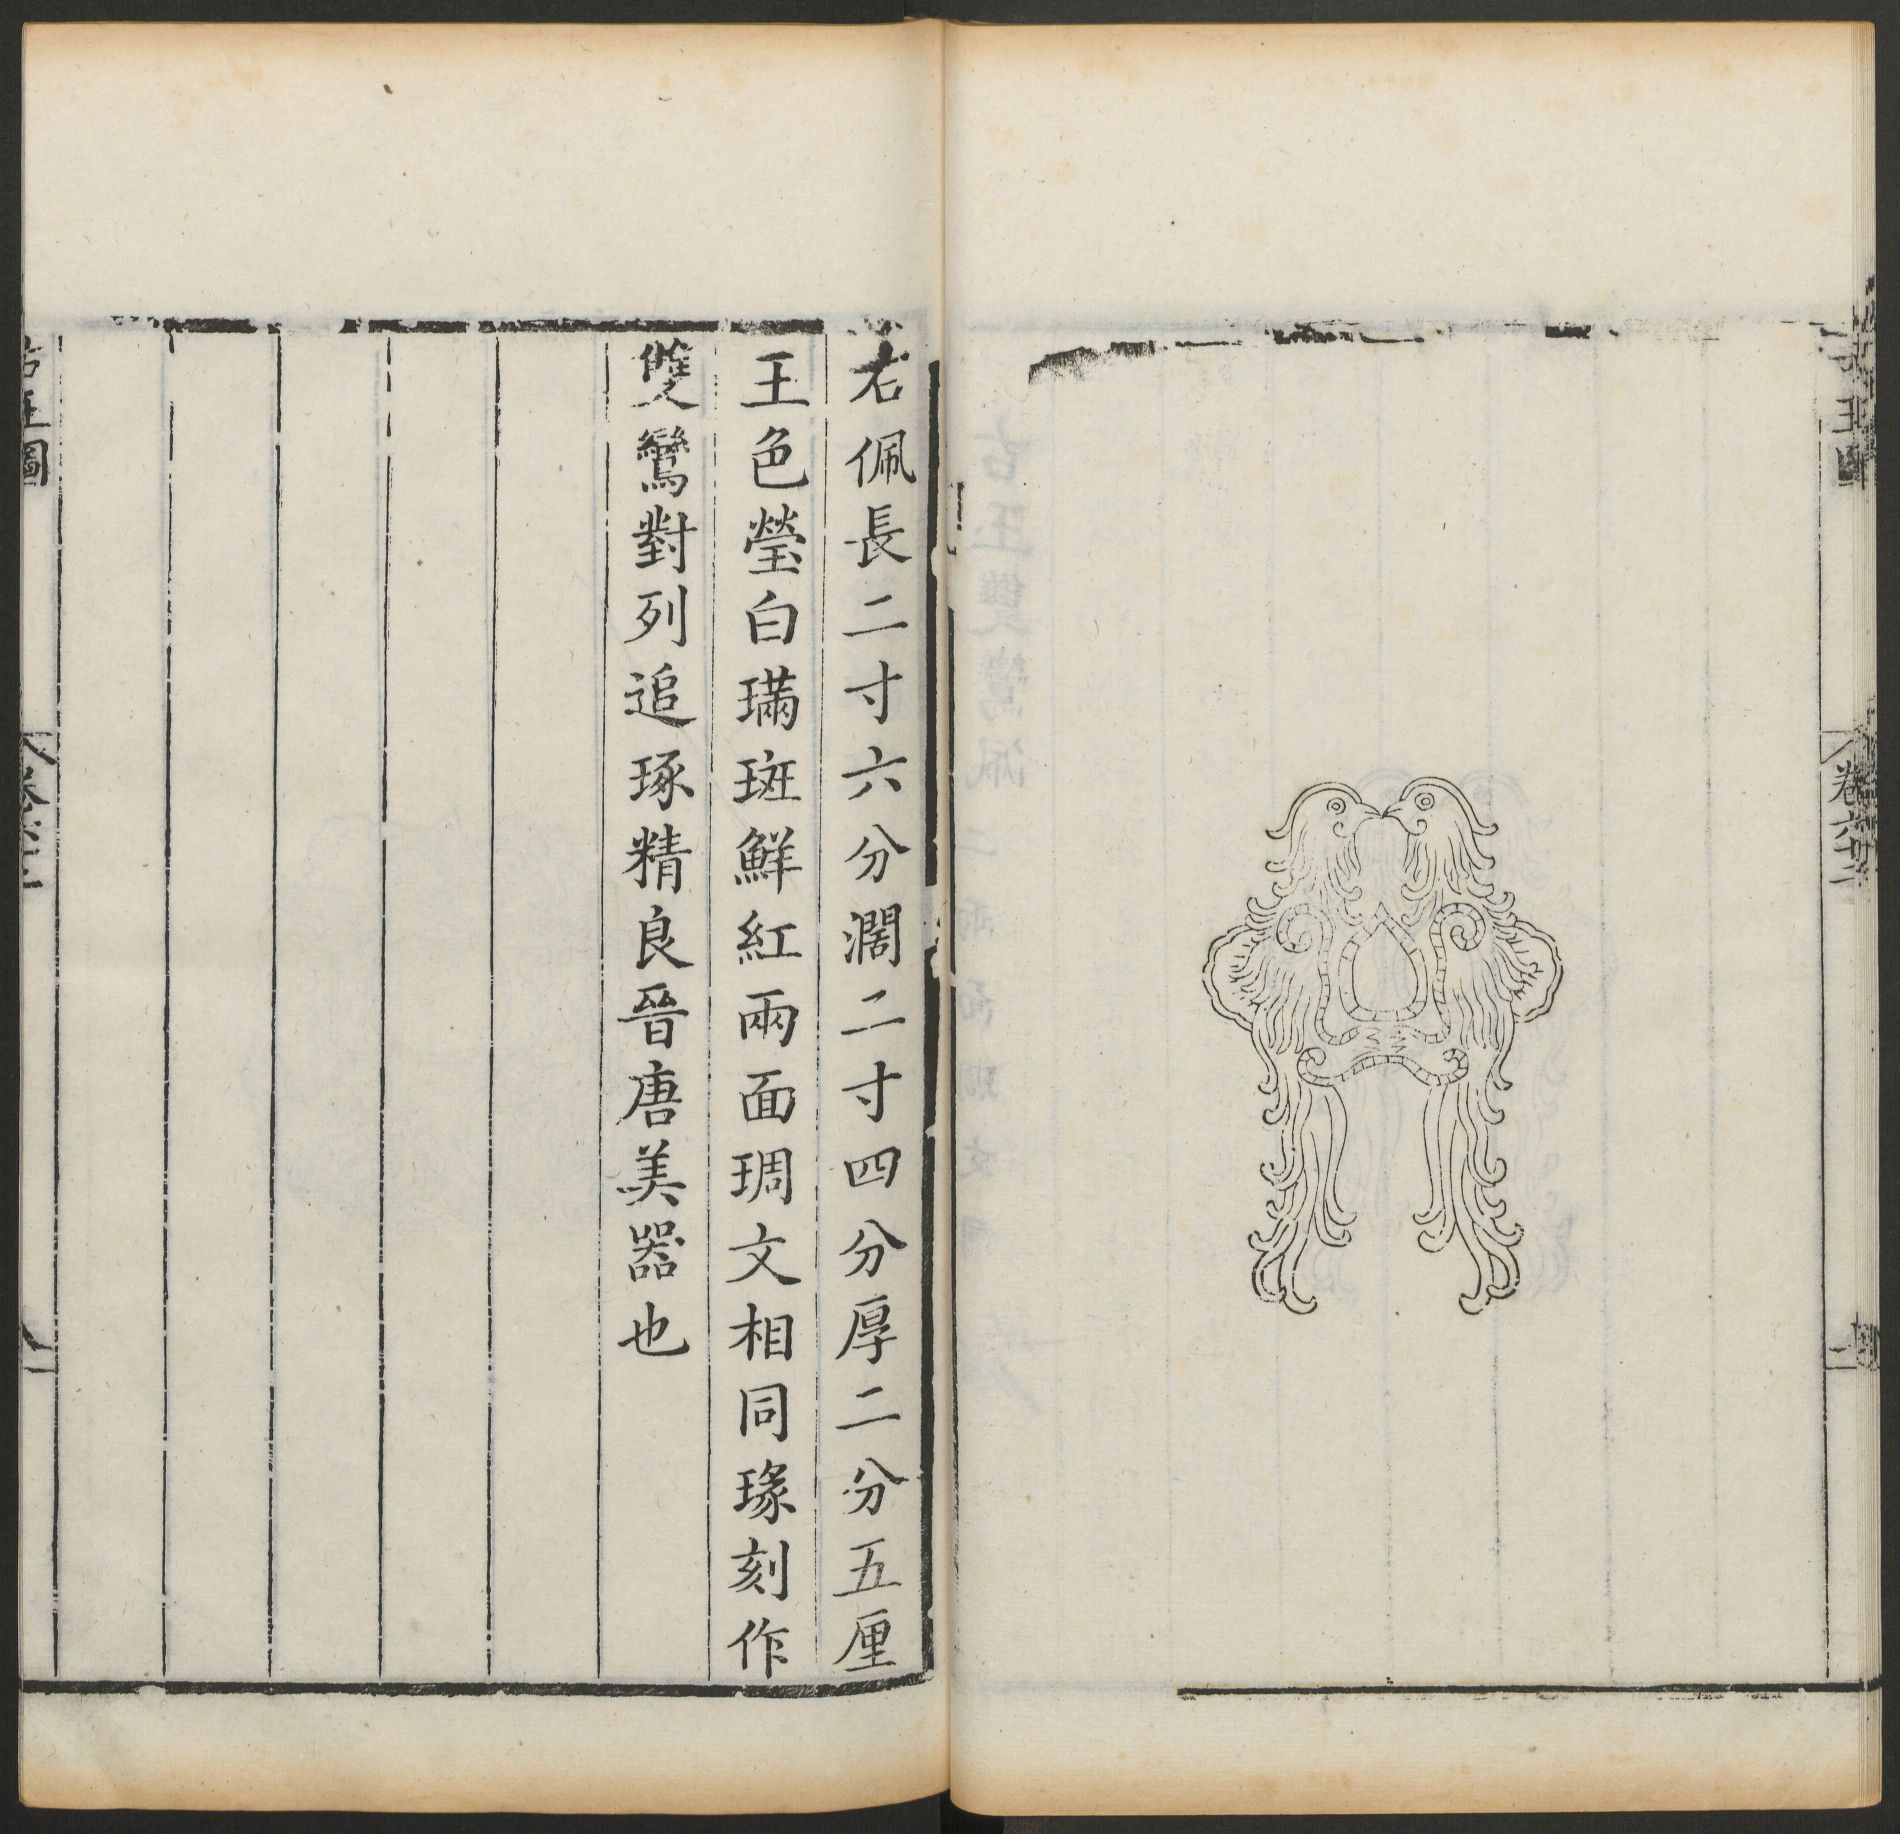 卷六十二
右佩長二寸六分濶二寸四分厚二分五厘
王色瑩白璊斑鮮紅兩面琱文相同瑑刻作
雙鸞對列追琢精良晉唐美器也